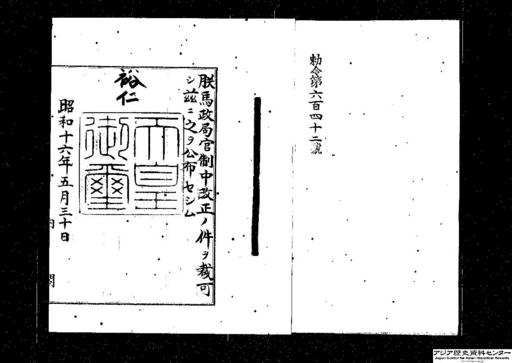 勅令第六百四十二號
朕馬政局官制中改正ノ件ヲ裁可
シ茲ニ之ヲ公布セシム
裕仁
天皇
御璽
昭和十六年五月三十日
内閣
アジア歴史資料センター
Japan Center for Asian Historical Records